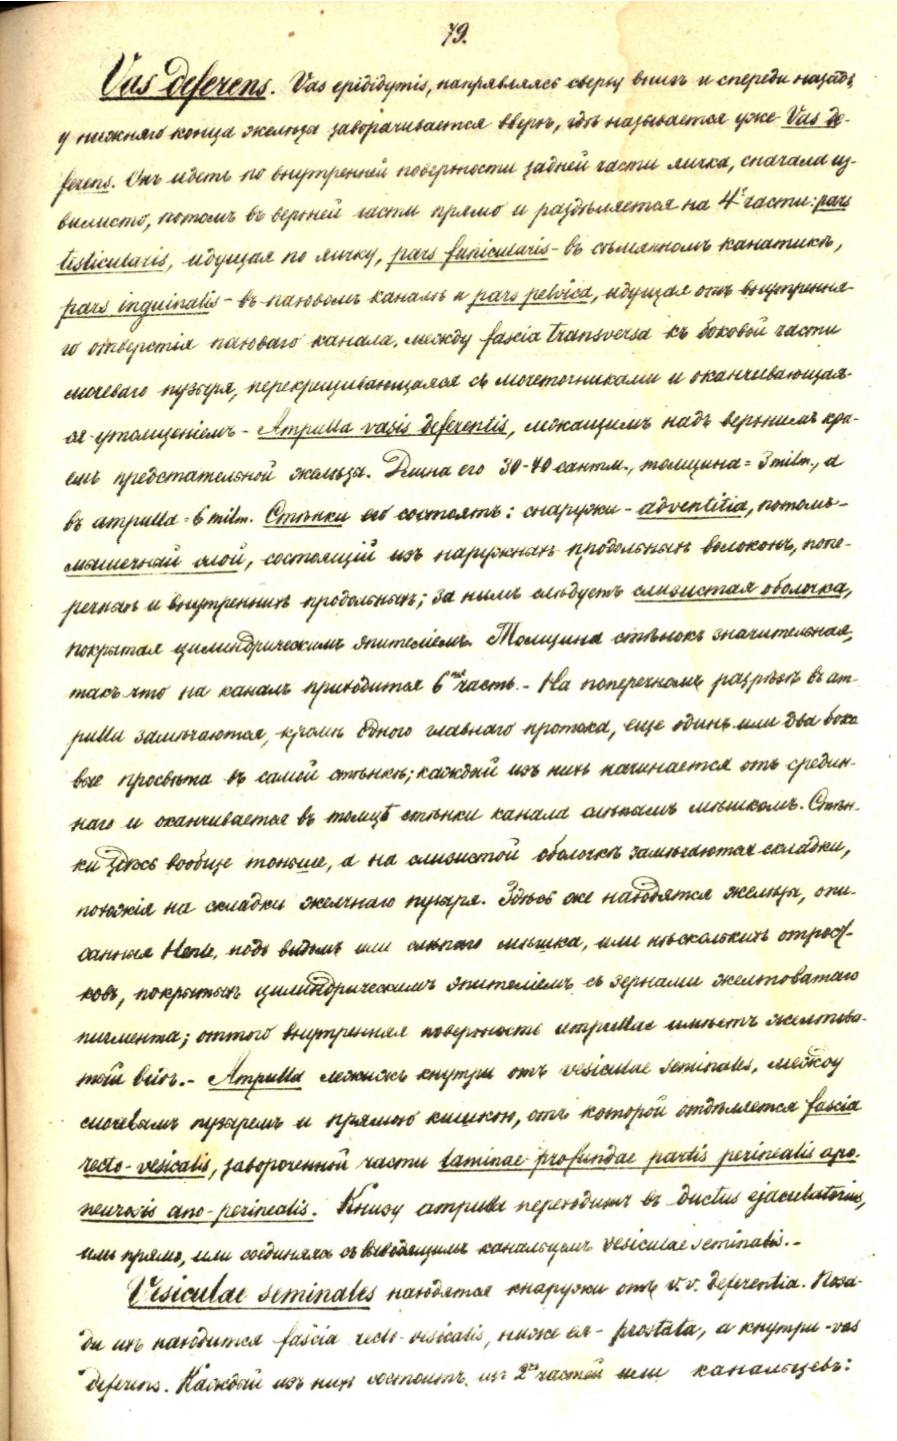 79.
Vas deferens. Vas epididymis, направляясь сверху внизъ и спереди назадъ,
у нижняго конца железы заворачивается вверхъ, гдѣ называется уже Vas de-
ferens. Онъ идетъ по внутренней поверхности задней части яичка, сначала из-
вилисто, потомъ въ верхней части прямо и раздѣляется на 4 части: pars
testicularis, идущая по яичку, pars funicularis - въ сѣмянномъ канатикѣ,
pars inguinalis - въ паховомъ каналѣ и pars pelvica, идущая отъ внутрення-
го отверстія пахового канала, между fascia transversa къ боковой части
мочеваго пузыря, перекрещивающаяся съ мочеточниками и оканчивающая-
ся утолщеніемъ - Ampulla vasis deferentis, лежащимъ надъ верхнимъ кра-
емъ предстательной железы. Длина его 30-40 сантм., толщина = 3 milm., а
въ ampulla = 6 milm. Стѣнки его состоятъ: снаружи - adventitia, потомъ -
мышечный слой, состоящій изъ наружныхъ продольныхъ волоконъ, попе-
речныхъ и внутреннихъ продольныхъ; за нимъ слѣдуетъ слизистая оболочка,
покрытая цилиндрическимъ эпителіемъ. Толщина стѣнокъ значительная,
такъ что на каналъ приходится 6ая часть. - На поперечномъ разрѣзѣ въ am-
pulla замѣчаются, кромѣ одного главнаго протока, еще одинъ или два боко
вые просвѣта въ самой стѣнкѣ; каждый изъ нихъ начинается отъ средин-
наго и оканчивается въ толщѣ стѣнки канала слѣпымъ мѣшкомъ. Стѣн-
ки здѣсь вообще тоньше, а на слизистой оболочкѣ замѣчаются складки,
похожія на складки желчнаго пузыря. Здѣсь же находятся железы, опи-
санныя Henle, подъ видомъ или слѣпаго мѣшка, или нѣсколькихъ отрост-
ковъ, покрытыхъ цилиндрическимъ эпителіемъ съ зернами желтоватаго
пигмента; оттого внутренняя поверхность ampullae имѣетъ желтова-
тый видъ. - Ampulla лежитъ кнутри отъ vesiculae seminales, между
мочевымъ пузыремъ и прямою кишкою, отъ которой отдѣляется fascia
recto-vesicalis, завороченной части laminae profundae partis perinealis apo-
neurosis ano-perinealis. Книзу ampulla переходитъ въ ductus ejaculatorius,
или прямо, или соединяясь съ выводящимъ канальцемъ vesiculae seminalis. -
Vesiculae seminales находятся кнаружи отъ v.v. deferentia. Поза-
ди ихъ находится fascia recto-vesicalis, ниже ея - prostata, а кнутри - vas
deferens. Каждый изъ нихъ состоитъ изъ 2хъ частей или канальцевъ: